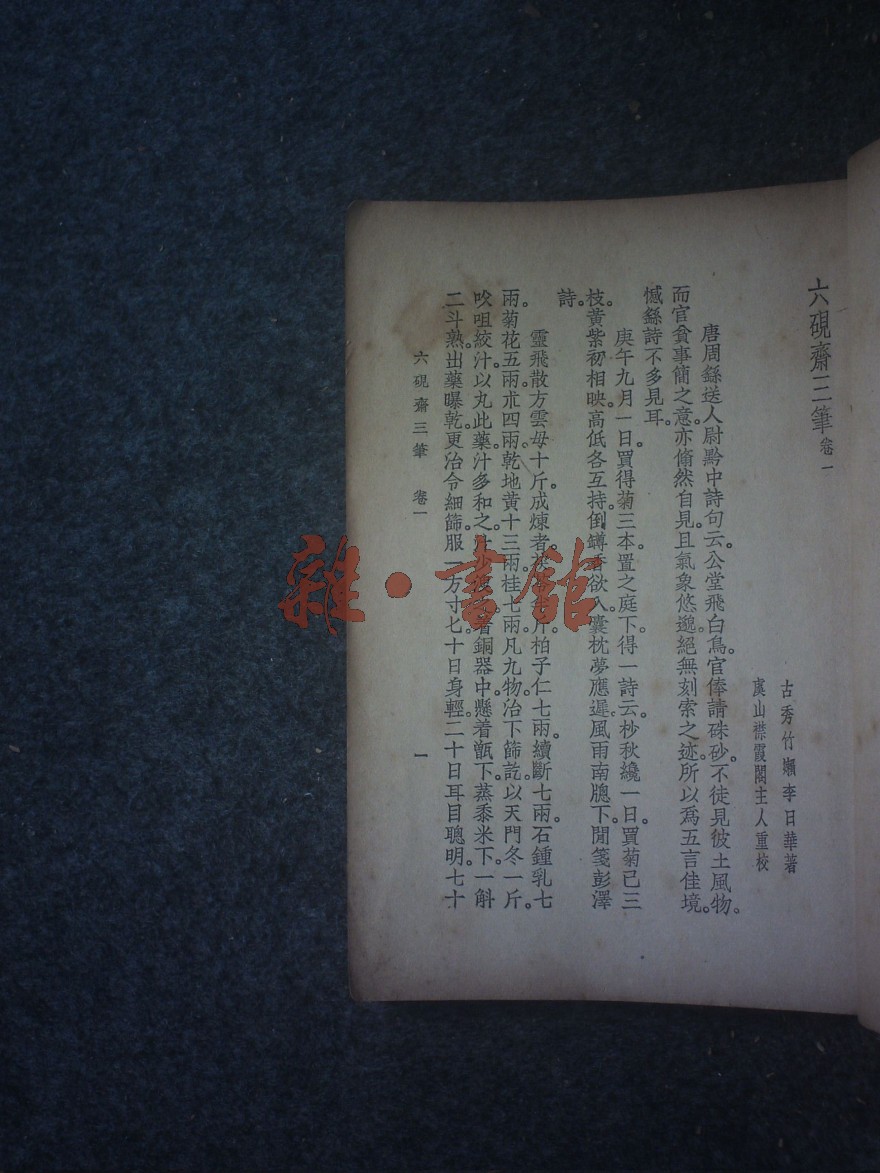 六硯齋三筆 卷一
古秀竹嬾李日華著
虞山襟霞閣主人重校
唐周繇送人尉黔中詩句云。公堂飛白鳥。官俸請硃砂。不徒見彼土風物。
而官貧事簡之意。亦翛然自見。且氣象悠邈。絕無刻索之迹。所以為五言佳境。
憾繇詩不多見耳。
庚午九月一日。買得菊三本。置之庭下。得一詩云。杪秋纔一日。買菊已三
枝。黃紫初相映。高低各互持。倒罇香欲入。囊枕夢應遲。風雨南牕下。閒箋彭澤
詩。
靈飛散方。雲母十斤。成煉者。柏子仁七兩。續斷七兩。石鍾乳七
兩。菊花五兩。朮四兩。乾地黃十三兩。桂七兩。凡九物。治下篩訖。以天門冬一斤。
㕮咀絞汁。以丸此藥。汁多和之。銅器中。懸着甑下。蒸黍米下。一斛
二斗熟。出藥曝乾。更治令細篩。服一方寸七。十日身輕。二十日耳目聰明。七十
六硯齋三筆 卷一
一
雜·書館